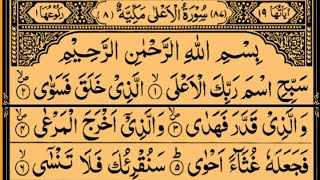 اٰيَاتُهَا ١٩ (٨٧) سُوْرَةُ الْاَعْلٰى مَكِّيَّةٌ (٨) رُكُوْعُهَا ١
بِسْمِ اللّٰهِ الرَّحْمٰنِ الرَّحِيْمِ
سَبِّحِ اسْمَ رَبِّكَ الْاَعْلَى ۙ ١ الَّذِيْ خَلَقَ فَسَوّٰى ۙ ٢
وَالَّذِيْ قَدَّرَ فَهَدٰى ۙ ٣ وَالَّذِيْٓ اَخْرَجَ الْمَرْعٰى ۙ ٤
فَجَعَلَهٗ غُثَآءً اَحْوٰى ۙ ٥ سَنُقْرِئُكَ فَلَا تَنْسٰٓى ۙ ٦